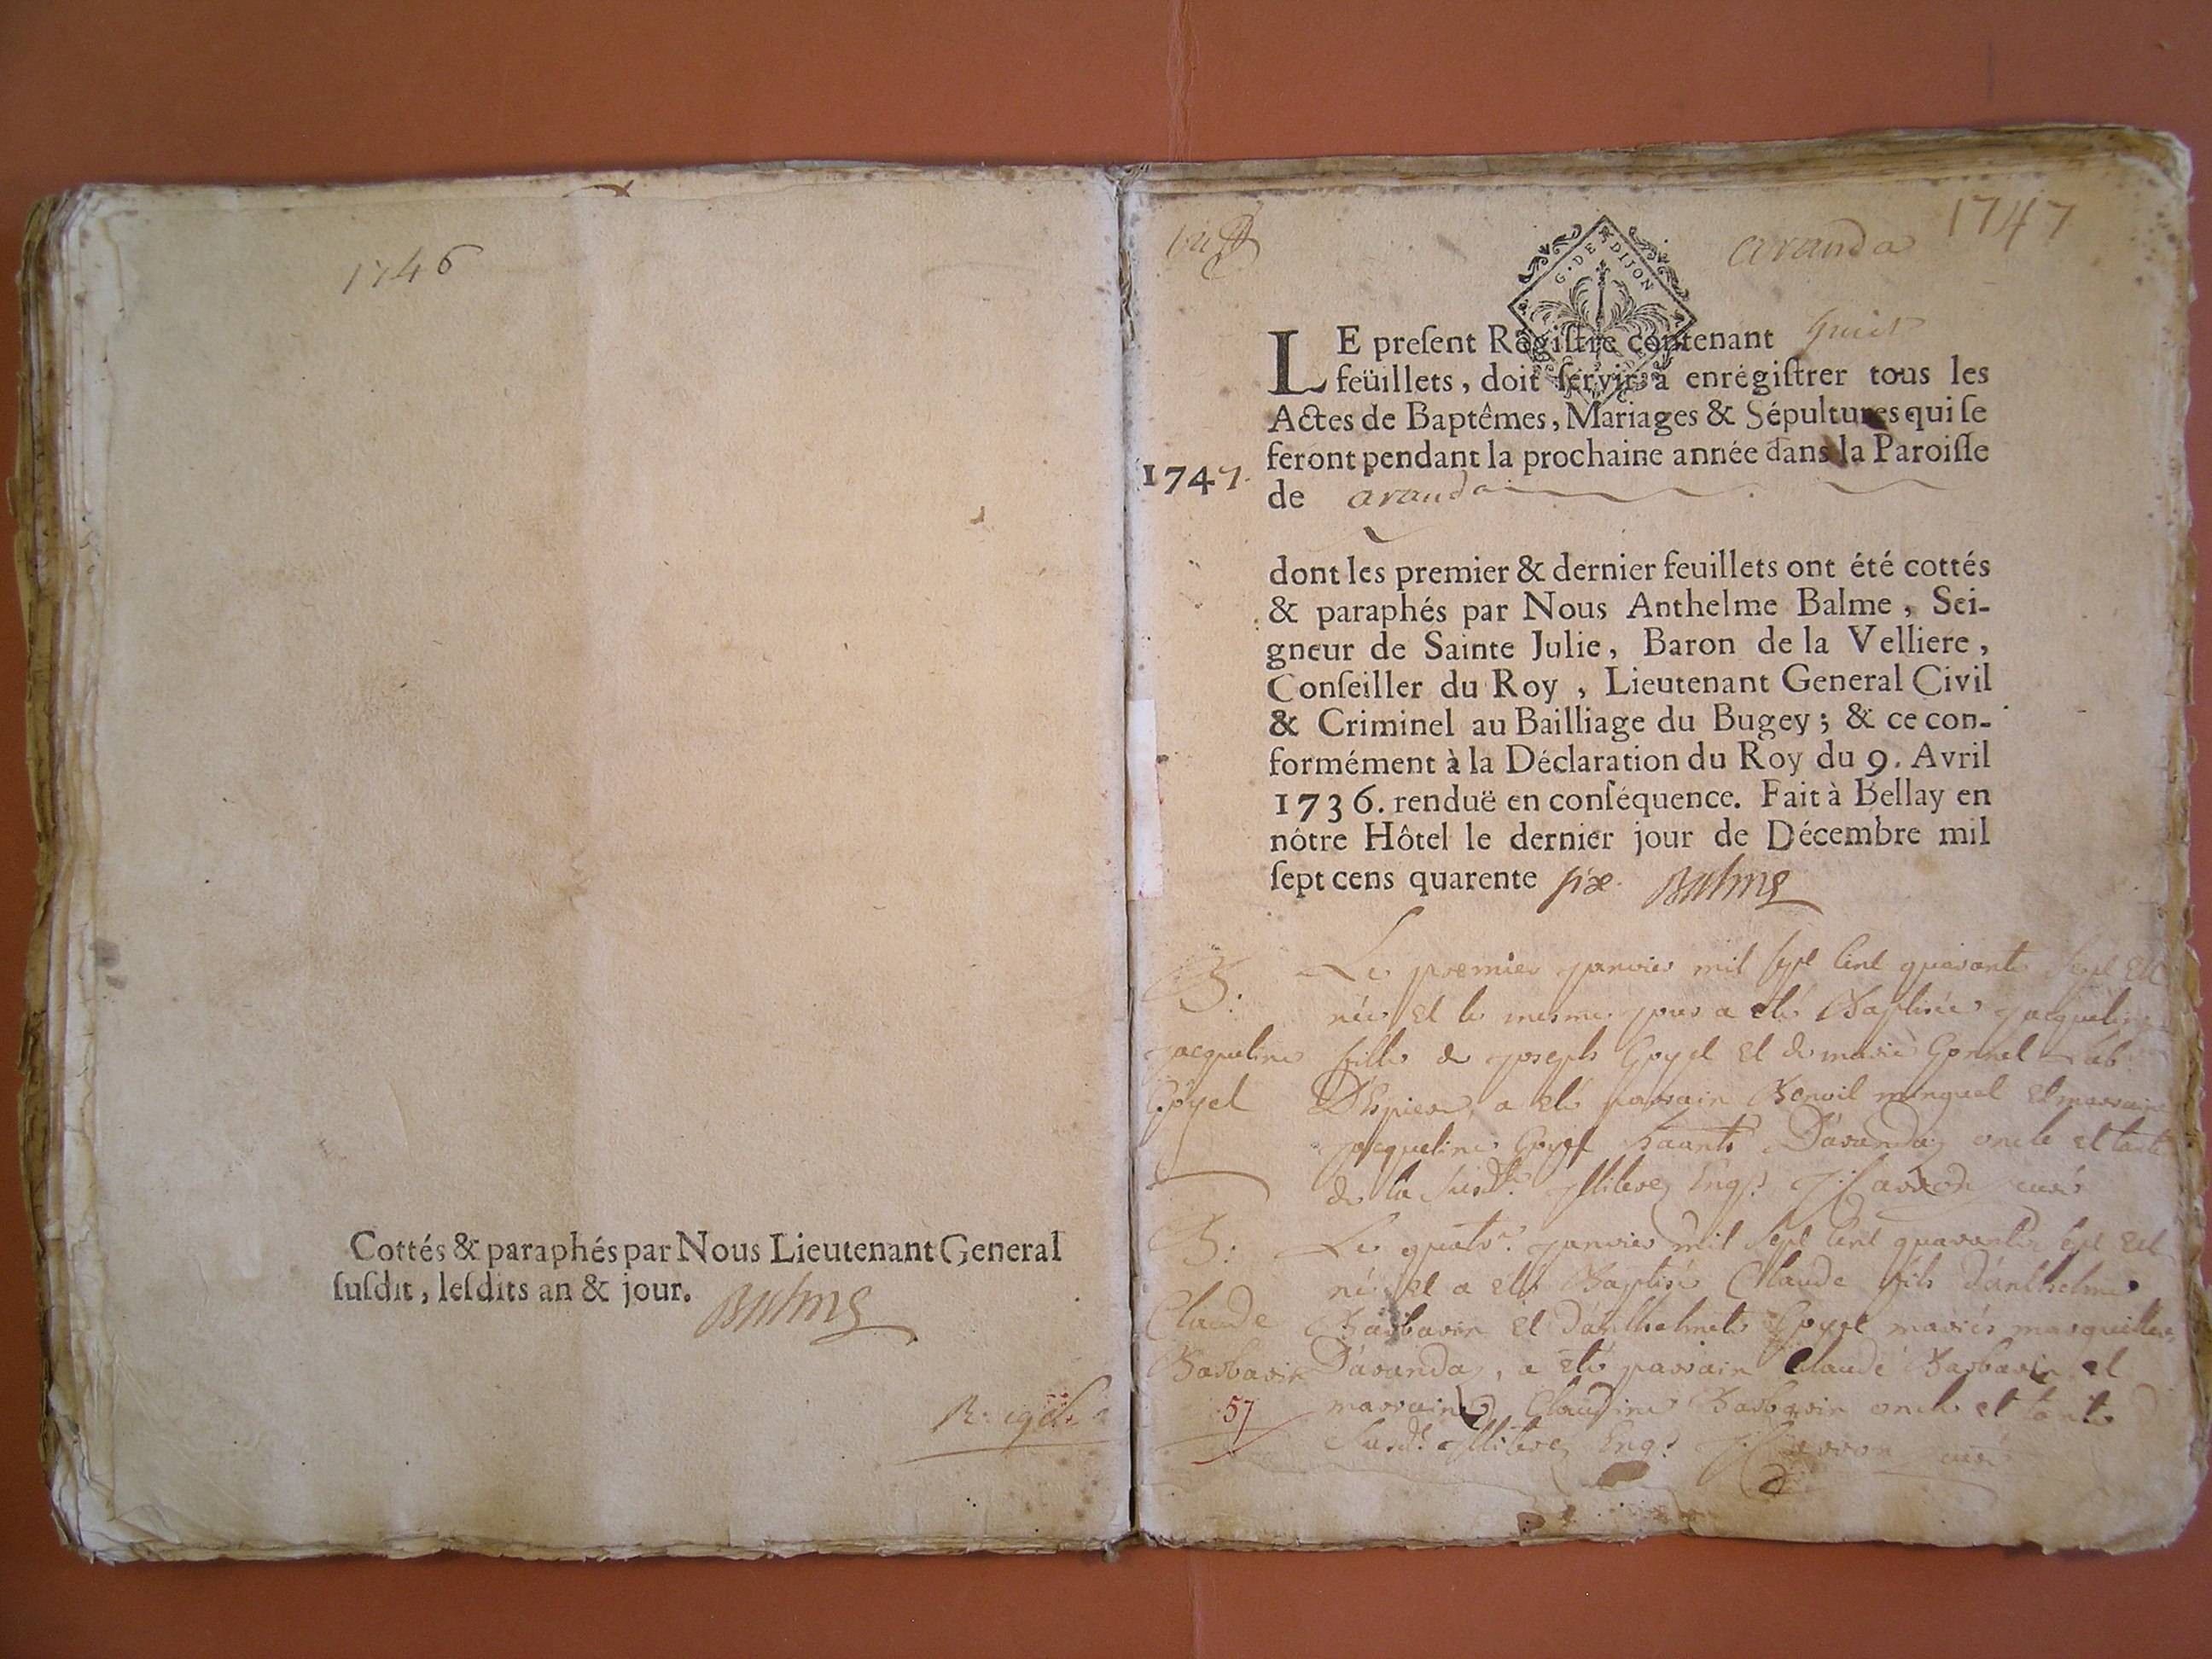 1746
Cottés & paraphés par Nous Lieutenant General
ſuſdit, leſdits an & jour. Balme
aranda 1747
G. DE DIJON
LE preſent Regiſtre contenant huit
feüillets, doit ſervir à enrégiſtrer tous les
Actes de Baptêmes, Mariages & Sépultures qui ſe
feront pendant la prochaine année dans la Paroiſſe
1747.
de aranda
dont les premier & dernier feuillets ont été cottés
& paraphés par Nous Anthelme Balme, Sei-
gneur de Sainte Julie, Baron de la Velliere,
Conſeiller du Roy, Lieutenant General Civil
& Criminel au Bailliage du Bugey; & ce con-
formément à la Déclaration du Roy du 9. Avril
1736. renduë en conſéquence. Fait à Bellay en
nôtre Hôtel le dernier jour de Décembre mil
ſept cens quarente six Balme
B. Le premier janvier mil sept cent quarante sept est
née et le mesme jour a été Baptisée jacqueline
jacqueline fille de joseph Goyet et de marie Gonnet
Goyet a été parrain Benoit minguet et marraine
jacqueline Goyet D'aranda oncle et tante
de la susd. illiterez Enq. curé
B. Le quatr. janvier mil sept cent quarante sept est
né et a été Baptisé Claude fils d'anthelme
Claude Barbarin et d'anthelmette Goyet mariés
Barbarin D'aranda, a été parrain Claude Barbarin et
57 marraine Claudine Barbarin oncle et tante
susd. illiterez Enq. curé